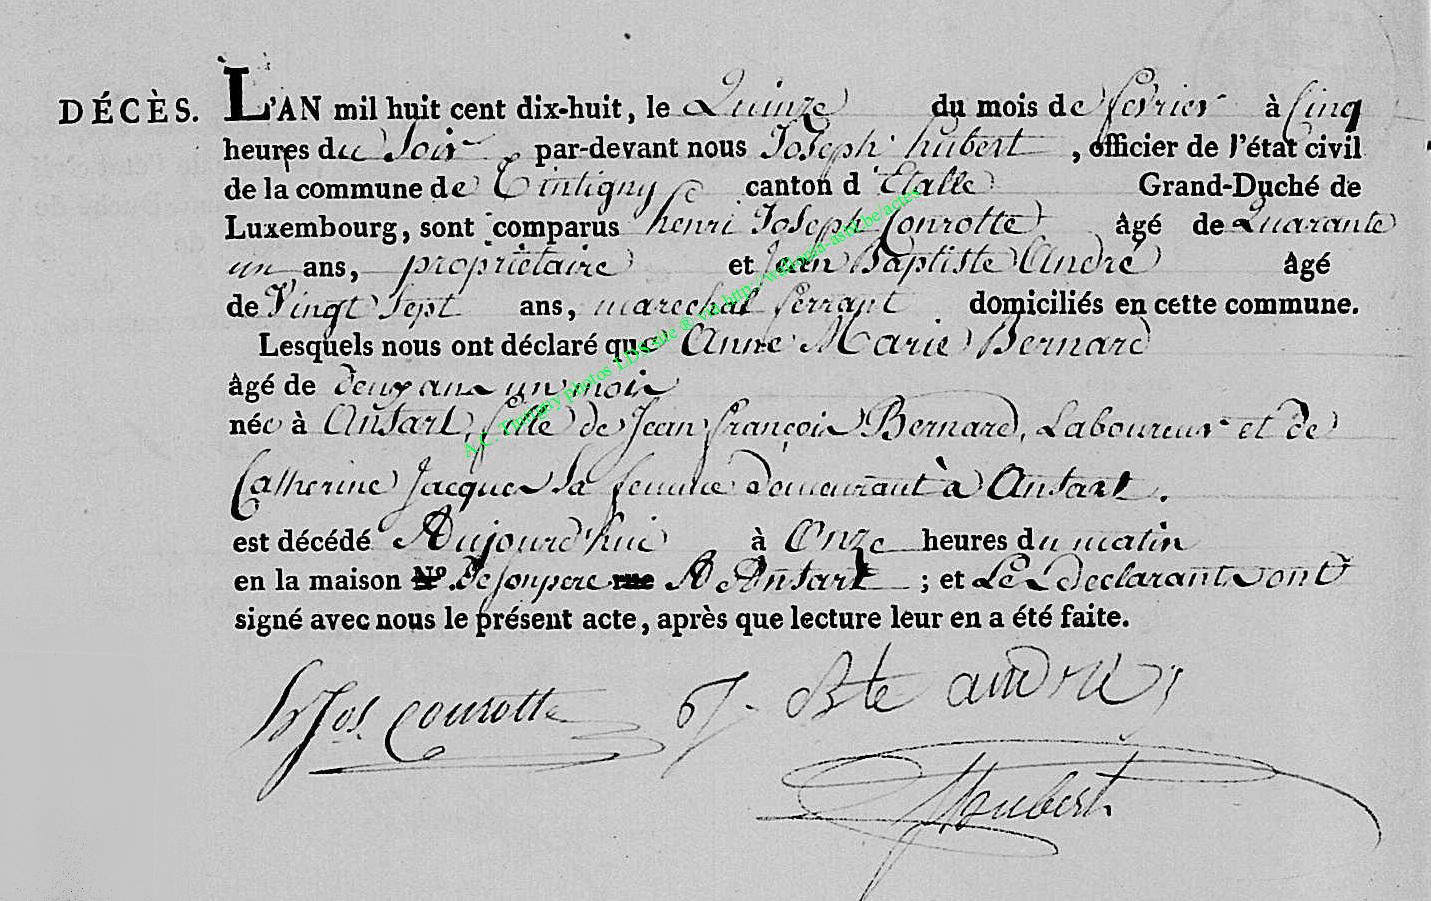 DÉCÈS. L'AN mil huit cent dix-huit, le Quinze du mois de fevrier à Cinq
heures du Soir par-devant nous Joseph hubert, officier de l'état civil
de la commune de Tintigny canton d'Etalle Grand-Duché de
Luxembourg, sont comparus henri Joseph Conrotte âgé de Quarante
un ans, propriètaire et Jean Baptiste André âgé
de Vingt Sept ans, marechal ferrant domiciliés en cette commune.
Lesquels nous ont déclaré que Anne Marie Bernard
âgé de deux ans un mois
née à Ansart, fille de Jean françois Bernard, Laboureur et de
Catherine Jacques Sa femme demeurant à Ansart.
est décédé Aujourd'hui à Onze heures du matin
en la maison N.º de son pere rue A Ansart ; et Les Declarants ont
signé avec nous le présent acte, après que lecture leur en a été faite.
hJos Conrotte J. Bte andré
Houbert
A.C. Tintigny photos LDS site ® via http://wallonia-asbl.be/actes